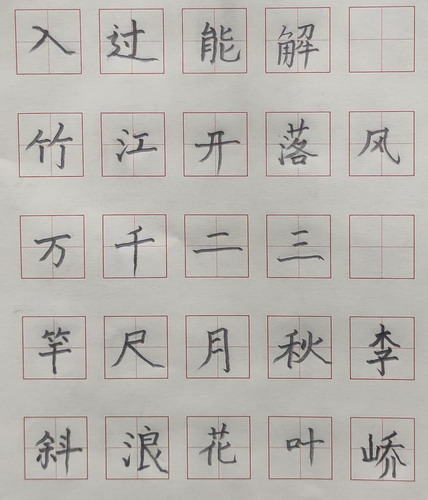 风 李峤
解落三秋叶
能开二月花
过江千尺浪
入竹万竿斜